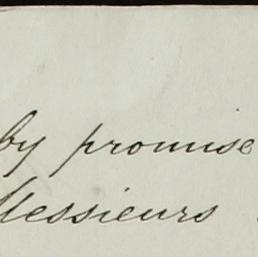 by promise
Messieurs